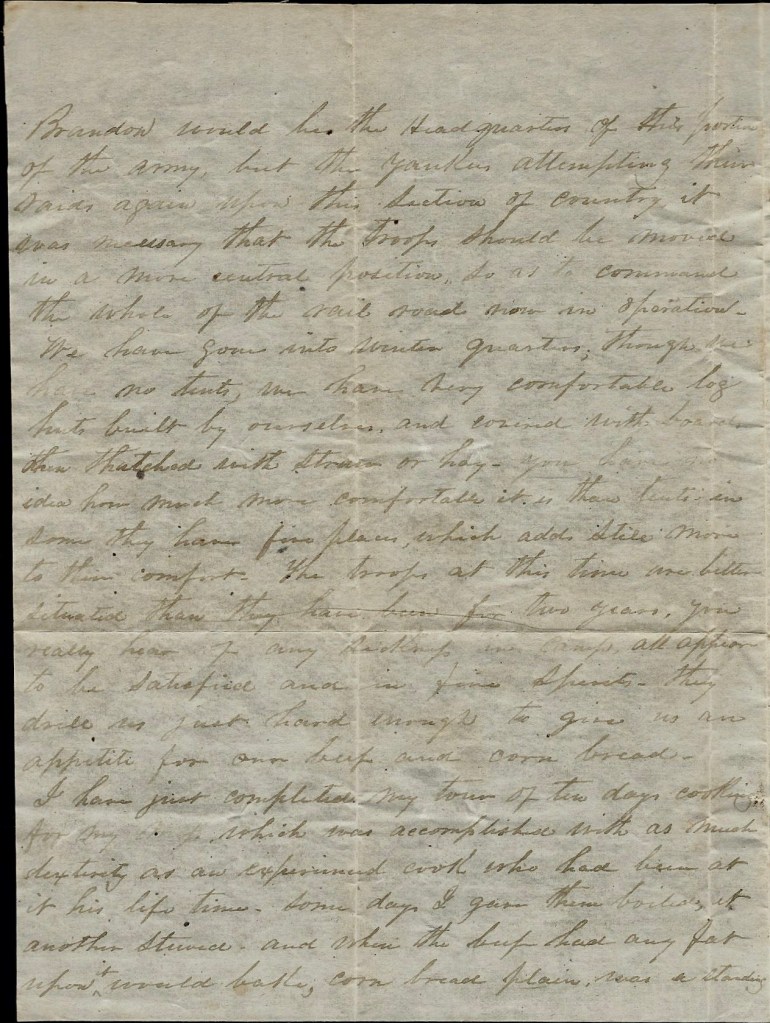 Brandon would be the Head quarters of this portion
of the army, but the Yankees attempting their
raids again upon this section of country, it
was necessary that the troops should be moved
in a more central position, so as to command
the whole of the rail road now in operation -
We have gone into winter quarters, though we
have no tents, we have very comfortable log
huts built by ourselves, and covered with boards
then thatched with straw or hay - you have no
idea how much more comfortable it is than tents - in
some they have fire places, which adds still more
to their comfort - The troops at this time are better
situated than they have been for two years, you
really hear of any sickness in camp, all appear
to be satisfied and in fine spirits - they
drill us just hard enough to give us an
appetite for our beef and corn bread -
I have just completed my tour of ten days cooking
for my which was accomplished with as much
dexterity as an experienced cook who had been at
it his life time - some days I gave them boiled, at
another stewed - and when the beef had any fat
upon it would bake, corn bread plain, was a standing